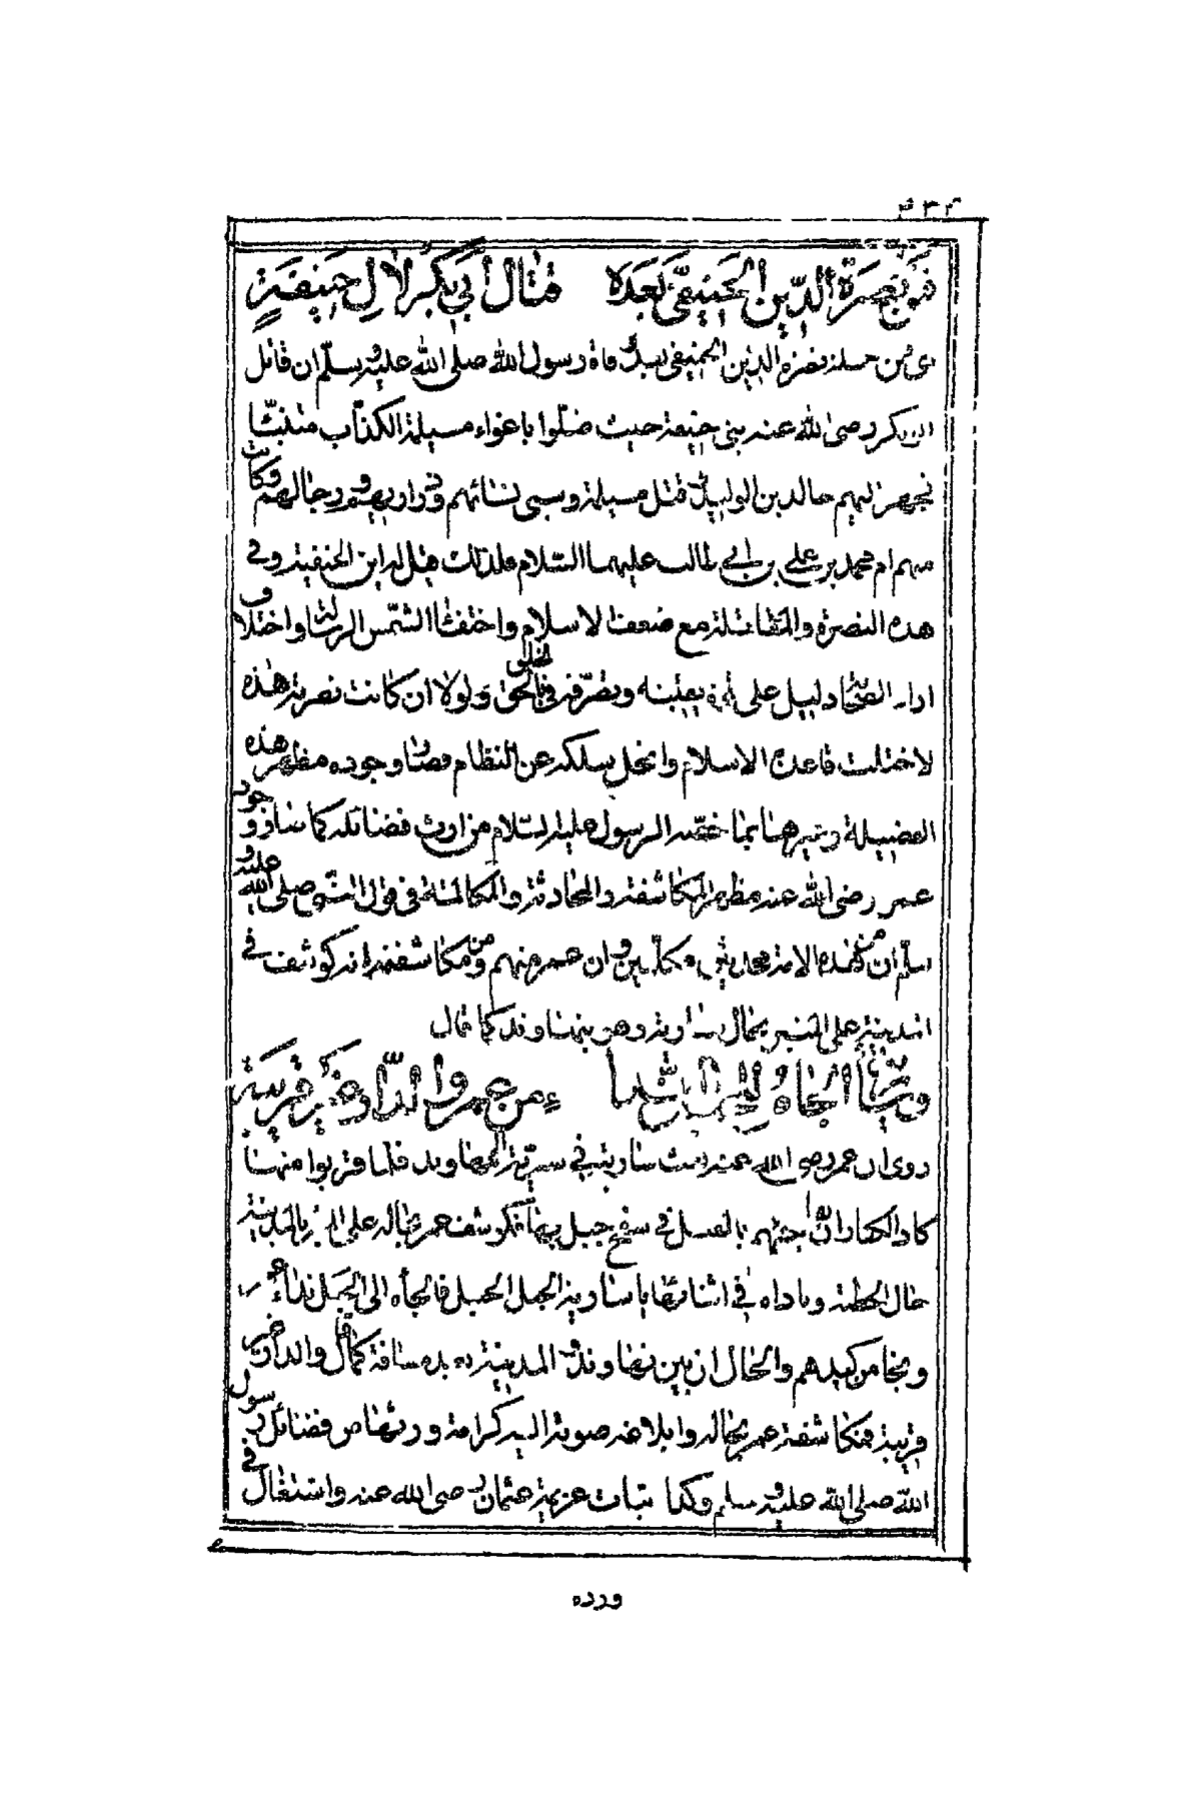 ٢٣٤
فمن نصرة الدين الحنيفي بعده قتال أبي بكر لآل حنيفة
ى من جملة نصرة الدين الحنيفي بعد وفاة رسول الله صلى الله عليه وسلم ان قاتل
ابو بكر رضى الله عنه بنى حنيفة حيث ضلوا باغواء مسيلمة الكذاب متنبئا
فجهز اليهم خالد بن الوليد قتل مسيلمة وسبى نسائهم وذراريهم ورجالهم وكانت
منهم ام محمد بن على بن ابي طالب عليهما السلام فلذلك قيل له ابن الحنفية وفى
هذه النصرة والمقاتلة مع ضعف الاسلام واختفاء الشمس الرسالة واختلاف
اراء الصحابة دليل على يقينه وتصرفه فى الخلق بالحق ولولا ان كانت نصرته هذه
لاختلت قاعدة الاسلام وانحل سلكه عن النظام فصار وجوده مظهر هذه
الفضيلة وغيرها بما خصه الرسول عليه السلام من ارث فضائله كما صار وجود
عمر رضى الله عنه مظهر المكاشفة والمحادثة والمكالمة فى قول النبى صلى الله عليه و
سلم ان من هذه الامة محدثين ومكلمين وان عمر منهم ومن مكاشفته انه كوشف فى
المدينة على المنبر بحال سارية وهو بنهاوند كما قال
وسارية ألجاه للجبل النداء ء من عمر والدار غير قريبة
روى ان عمر رضى الله عنه بعث سارية فى سرية الى نهاوند فلما قربوا منها
كاد الكفار ان بالعسل فى سفح جبل بها فكوشف عمر بحاله على المنبر بالمدينة
حال الخطبة وناداه فى اثنائها يا سارية الجبل الجبل فالجأه الى الجبل نداء عمر
ونجا من كيدهم والحال ان بين نهاوند و المدينة بعد مسافة كما قال والدار غير
قريبة فمكاشفة عمر بحاله وابلاغه صوته اليه كرامة ورثها من فضائل رسول
الله صلى الله عليه وسلم وكذا ثبات عزيمة عثمان رضى الله عنه واشتغال فى
ورده